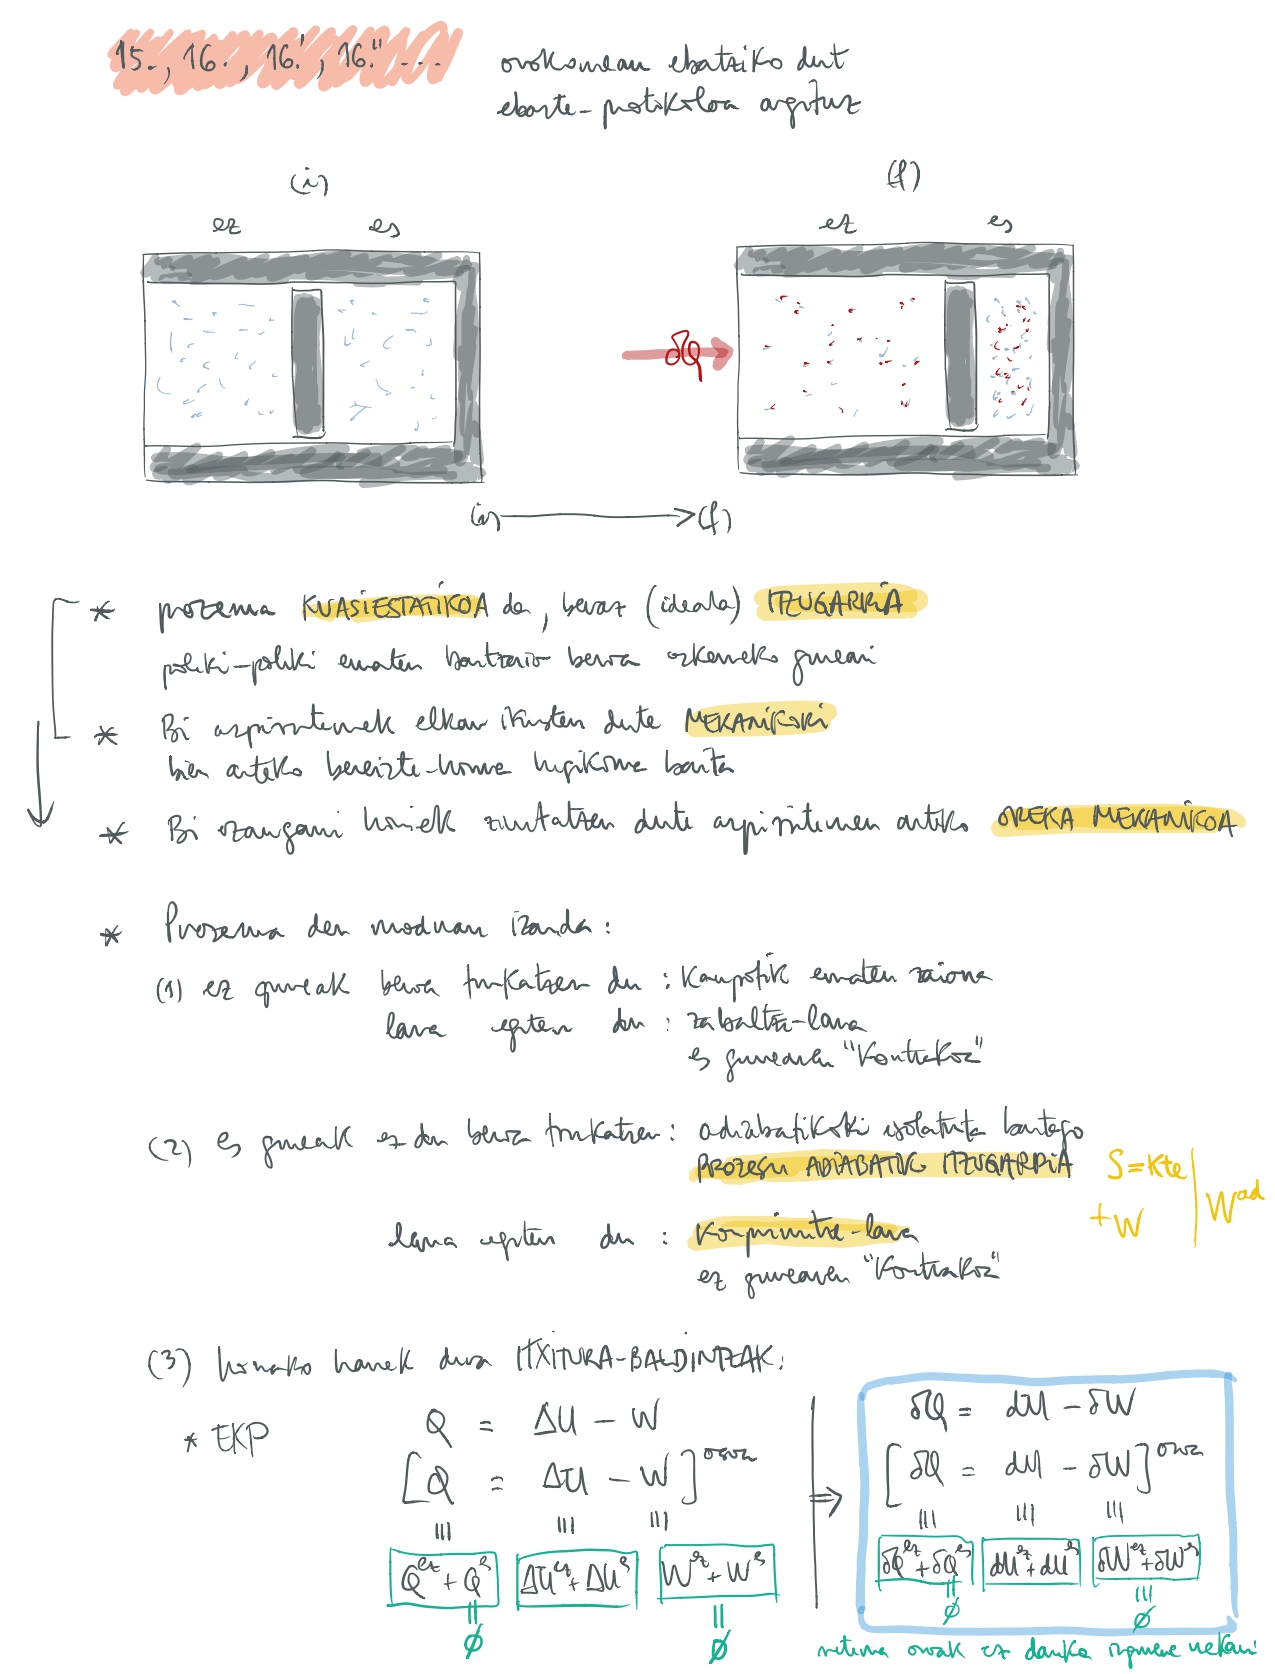 15., 16., 16.', 16.'' ...
orokorrean ebatziko dut
ebazte-protokoloa argituz
(i)
(f)
ez es
ez es
δQ
(i) → (f)
* prozesua KUASIESTATIKOA da, beraz (ideala) ITZULGARRIA
poliki-poliki ematen baitzaio beroa ezkerreko gasari
* Bi azpisistemek elkar ikusten dute MEKANIKOKI
bien arteko bereizte-horma higikorra baita
* Bi ezaugarri horiek ziurtatzen dute azpisistemen arteko OREKA MEKANIKOA
* Prozesua den moduan izanda:
(1) ez gureak beroa trukatzen du : Kanpotik ematen zaiona
lana egiten du : zabaltze-lana
es gurearen "Kontrakoa"
(2) es gureak ez du beroa trukatzen : adiabatikoki isolatuta baitago
PROZESU ADIABATIKO ITZULGARRIA
S = Kte
+ W
W^ad
lana egiten du : Konprimitze-lana
ez gurearen "Kontrakoa"
(3) horrako hauek dira ITXITURA-BALDINTZAK:
* TKP
Q = ΔU − W
[Q = ΔU − W]^osoa
≡ ≡ ≡
Q^ez + Q^es ΔU^ez + ΔU^es W^ez + W^es
= ∅ = ∅
⇒
δQ = dU − δW
[δQ = dU − δW]^osoa
≡ ≡ ≡
δQ^ez + δQ^es dU^ez + dU^es δW^ez + δW^es
= ∅ ≡ ∅
sistema osoak ez dauka ingurune mekanikorik